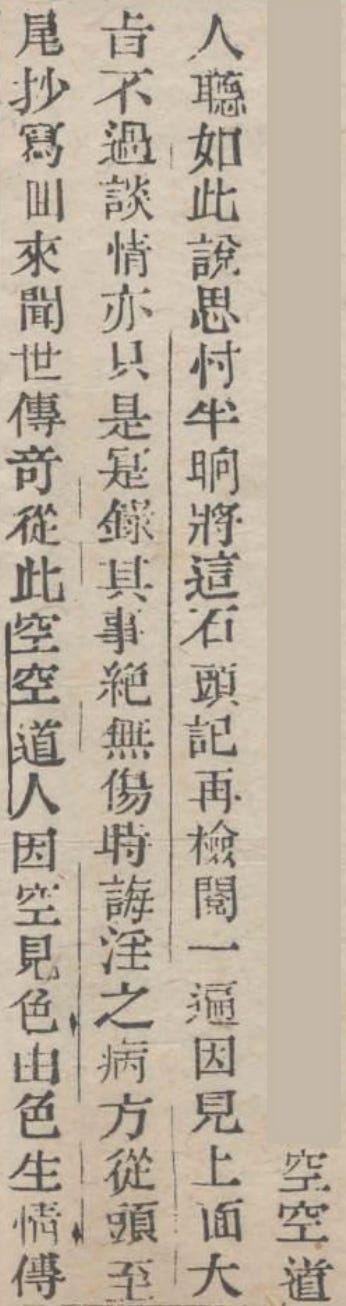 空空道
人聽如此說思忖半晌將這石頭記再檢閱一遍因見上面大
旨不過談情亦只是寔錄其事絕無傷時誨淫之病方從頭至
尾抄寫回來聞世傳奇從此空空道人因空見色由色生情傳